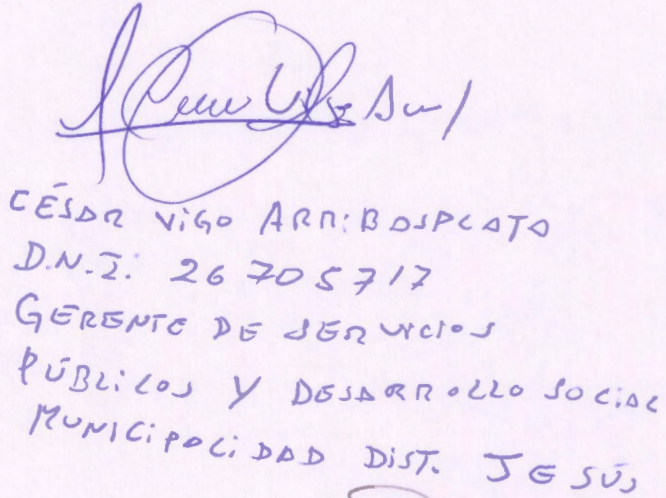 CÉSAR VIGO ARRIBASPLATA
D.N.I. 26705717
GERENTE DE SERVICIOS
PÚBLICOS Y DESARROLLO SOCIAL
MUNICIPALIDAD DIST. JESÚS